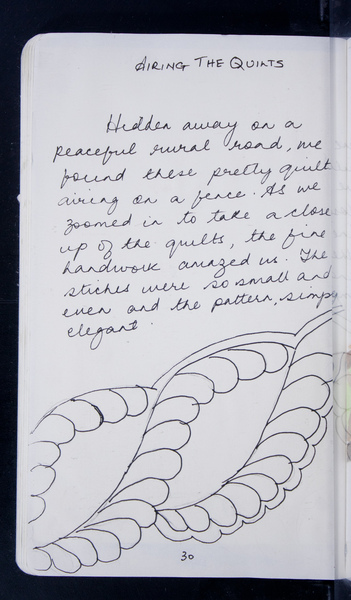 AIRING THE QUILTS
Hidden away on a
peaceful rural road, we
found these pretty quilt
airing on a fence. As we
zoomed in to take a close
up of the quilts, the fine
handwork amazed us. The
stiches were so small and
even and the pattern, simply
elegant.
30